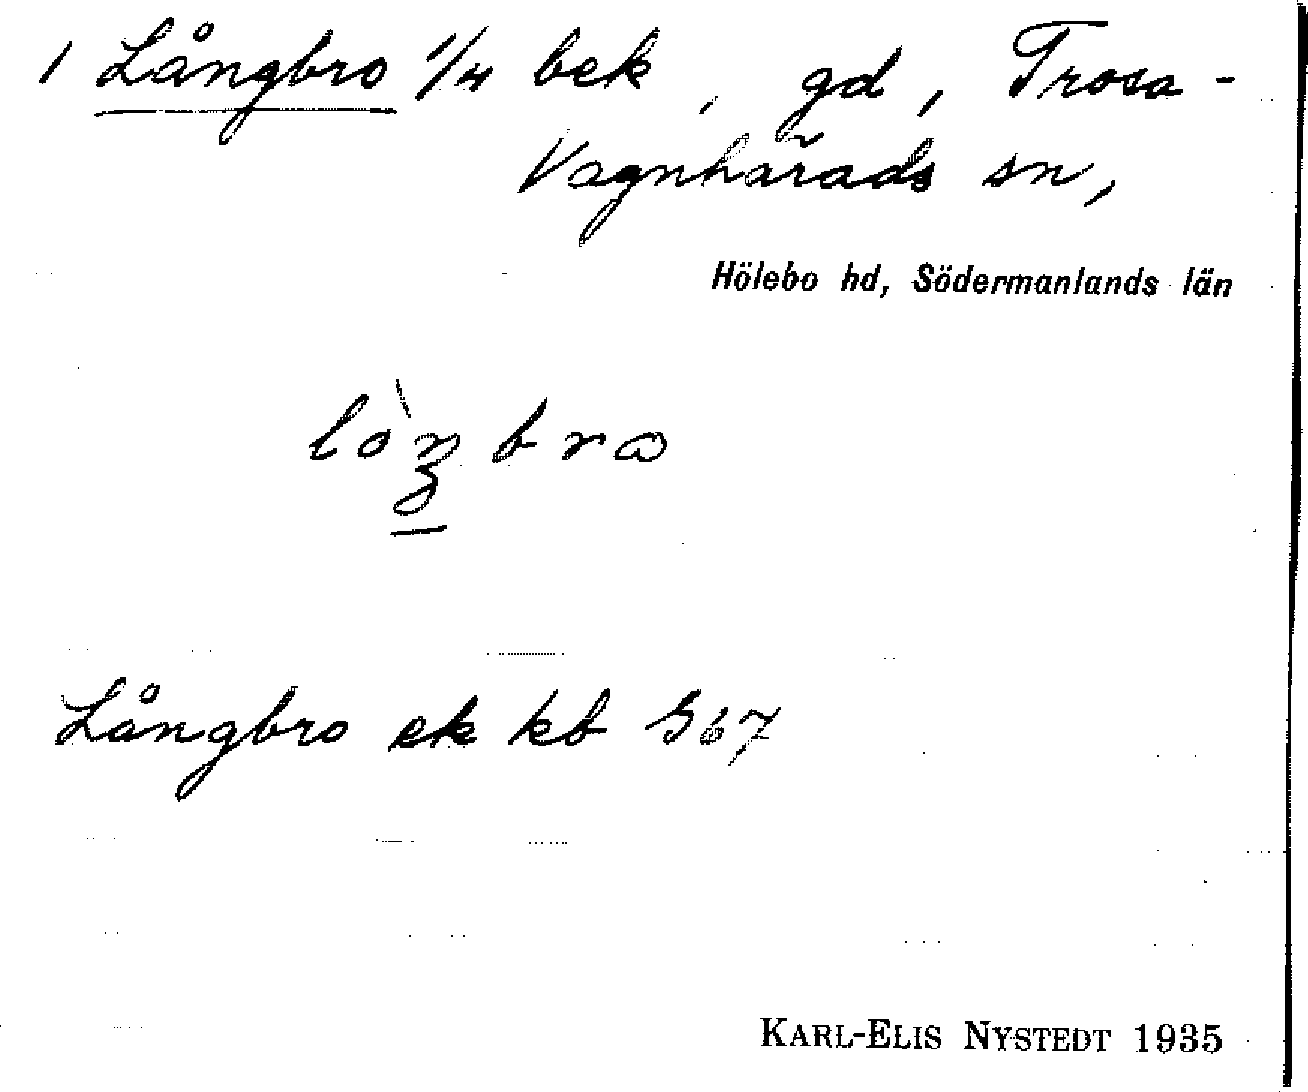 1 Långbro 1/4 bek, gd, Trosa-
Vagnhärads sn,
Hölebo hd, Södermanlands län
Långbro ek kb 567
KARL-ELIS NYSTEDT 1935